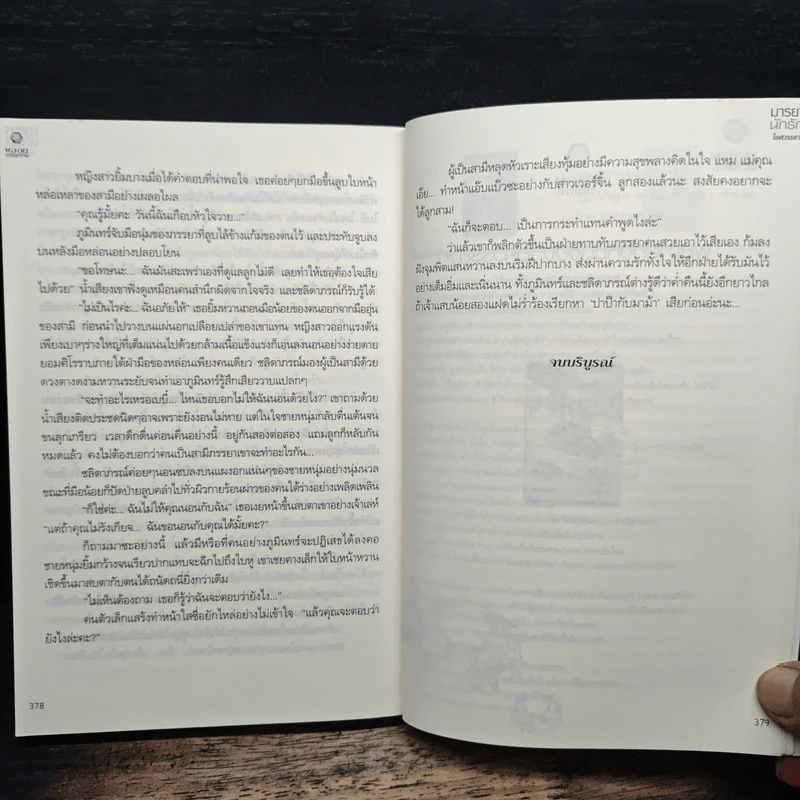 พลอย
วรรณกรรม
หญิงสาวยิ้มบางเมื่อได้คำตอบที่น่าพอใจ เธอค่อยๆยกมือขึ้นลูบใบหน้า
หล่อเหลาของสามีอย่างเผลอไผล
“คุณรู้มั้ยคะ วันนี้ฉันเกือบหัวใจวาย...”
ภูมินทร์จับมือนุ่มของภรรยาที่ลูบไล้ข้างแก้มของตนไว้ และประทับจูบลง
บนหลังมือหล่อนอย่างปลอบโยน
“ขอโทษนะ... ฉันมันสะเพร่าเองที่ดูแลลูกไม่ดี เลยทำให้เธอต้องใจเสีย
ไปด้วย” น้ำเสียงเขาฟังดูเหมือนคนสำนึกผิดจากใจจริง และชลิดาภรณ์ก็รับรู้ได้
“ไม่เป็นไรค่ะ... ฉันอภัยให้” เธอยิ้มหวานถอนมือน้อยของตนออกจากมืออุ่น
ของสามี ก่อนนำไปวางบนแผ่นอกเปลือยเปล่าของเขาแทน หญิงสาวออกแรงดัน
เพียงเบาๆร่างใหญ่ที่เต็มแน่นไปด้วยกล้ามเนื้อแข็งแรงก็เอนลงนอนอย่างง่ายดาย
ยอมศิโรราบภายใต้ฝ่ามือของหล่อนเพียงคนเดียว ชลิดาภรณ์มองผู้เป็นสามีด้วย
ดวงตางดงามหวานระยับจนทำเอาภูมินทร์รู้สึกเสียววาบแปลกๆ
“จะทำอะไรเหรอเบบี๋... ไหนเธอบอกไม่ให้ฉันนอนด้วยไง?” เขาถามด้วย
น้ำเสียงติดประชดนิดๆอาจเพราะยังงอนไม่หาย แต่ในใจชายหนุ่มกลับตื่นเต้นจน
ขนลุกเกรียว เวลาดึกดื่นค่อนคืนอย่างนี้ อยู่กันสองต่อสอง แถมลูกก็หลับกัน
หมดแล้ว คงไม่ต้องบอกว่าคนเป็นสามีภรรยาเขาจะทำอะไรกัน...
ชลิดาภรณ์ค่อยๆนอนซบลงบนแผงอกแน่นๆของชายหนุ่มอย่างนุ่มนวล
ขณะที่มือน้อยก็ปัดป่ายลูบคลำไปทั่วผิวกายร้อนผ่าวของคนใต้ร่างอย่างเพลิดเพลิน
“ก็ใช่ค่ะ... ฉันไม่ให้คุณนอนกับฉัน” เธอเงยหน้าขึ้นสบตาเขาอย่างเจ้าเล่ห์
“แต่ถ้าคุณไม่รังเกียจ... ฉันขอนอนกับคุณได้มั้ยคะ?”
ก็ถามมาซะอย่างนี้ แล้วมีหรือที่คนอย่างภูมินทร์จะปฏิเสธได้ลงคอ
ชายหนุ่มยิ้มกว้างจนเรียวปากแทบจะฉีกไปถึงใบหู เขาเชยคางเล็กให้ใบหน้าหวาน
เชิดขึ้นมาสบตากับตนได้ถนัดถนี่ยิ่งกว่าเดิม
“ไม่เห็นต้องถาม เธอก็รู้ว่าฉันจะตอบว่ายังไง...”
คนตัวเล็กแสร้งทำหน้าใสซื่อยักไหล่อย่างไม่เข้าใจ “แล้วคุณจะตอบว่า
ยังไงล่ะคะ?”
378
มารยา
นักรัก
ไลศวรรยา
ผู้เป็นสามีหลุดหัวเราะเสียงทุ้มอย่างมีความสุขพลางคิดในใจ แหม แม่คุณ
เอ๊ย... ทำหน้าแอ๊บแบ๊วซะอย่างกับสาวเวอร์จิ้น ลูกสองแล้วนะ สงสัยคงอยากจะ
ได้ลูกสาม!
“ฉันก็จะตอบ... เป็นการกระทำแทนคำพูดไงล่ะ”
ว่าแล้วเขาก็พลิกตัวขึ้นเป็นฝ่ายทาบทับภรรยาคนสวยเอาไว้เสียเอง ก้มลง
ฝังจุมพิตแสนหวานลงบนริมฝีปากบาง ส่งผ่านความรักทั้งใจให้อีกฝ่ายได้รับมันไว้
อย่างเต็มอิ่มและเนิ่นนาน ทั้งภูมินทร์และชลิดาภรณ์ต่างรู้ดีว่าค่ำคืนนี้ยังอีกยาวไกล
ถ้าเจ้าแสบน้อยสองแฝดไม่ร่ำร้องเรียกหา ‘ปาป๊ากับมาม้า’ เสียก่อนอ่ะนะ...
จบบริบูรณ์
379